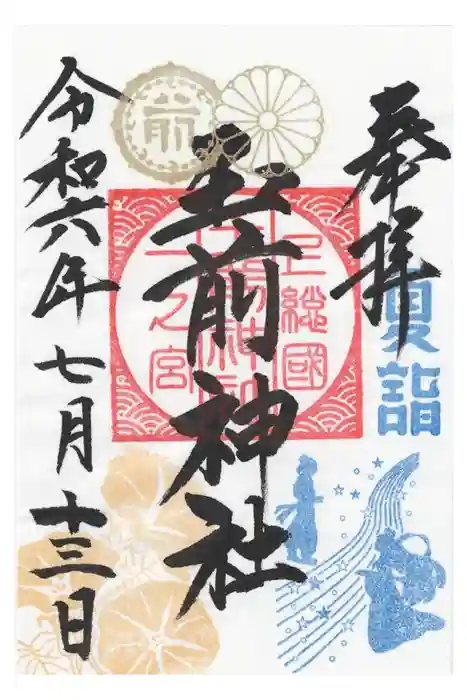 奉拝
夏詣
上総國
一之宮
前
玉前神社
令和六年七月十三日